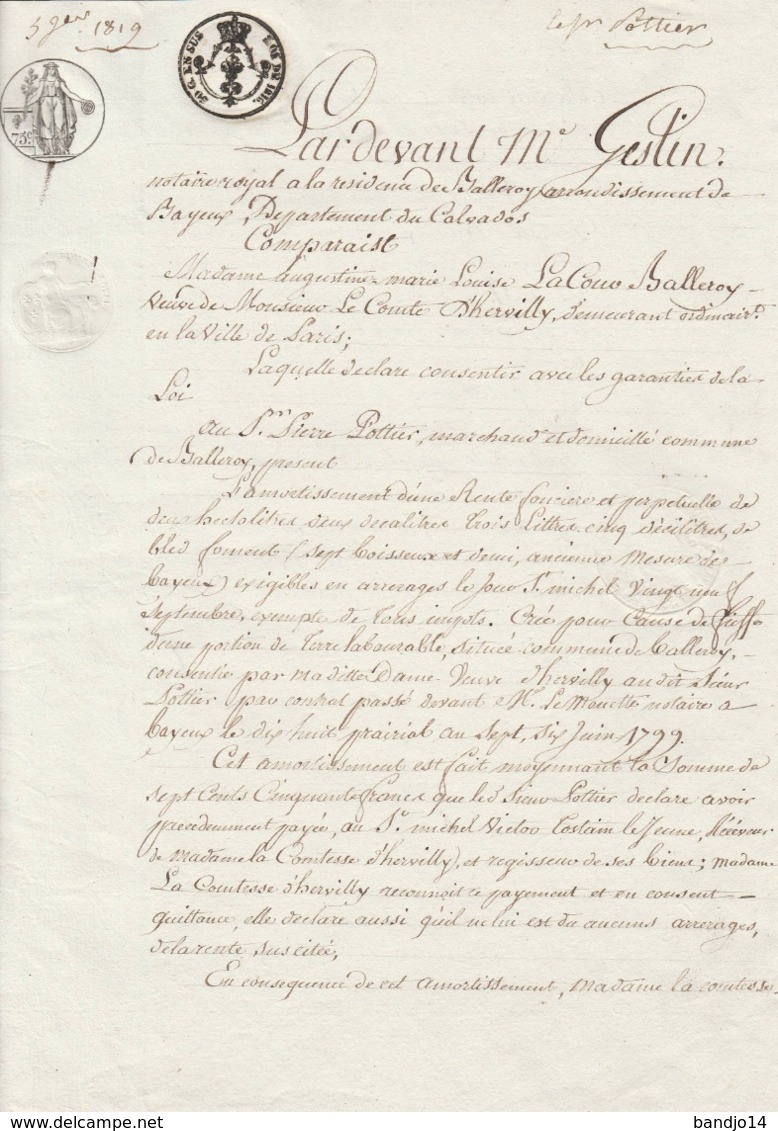 5 9bre 1819
le sr Pottier
50 C. EN SUS
LOI DE 1816.
75c
Pardevant Me Geslin.
notaire royal a la residence de Balleroy arrondissement de
Bayeux, Departement du Calvados
Comparaist
Madame augustine-marie Louise LaCour Balleroy-
veuve de Monsieur Le Comte D'hervilly, demeurant ordinairt.
en la ville de Paris;
Laquelle declare consentir avec les garanties de la
Loi
au Sr. Pierre Pottier, marchand et domicillé commune
de Balleroy, present
L'amortissement d'une Rente fonciere et perpetuelle de
deux hectolitres deux decalitres trois Littres cinq décilitres, de
bled froment (sept boisseux et demi, ancienne mesure de
bayeux) exigibles en arrerages le Jour St. michel vingt neuf
Septembre, exempte de tous impots. Créé pour Cause de fieffe
d'une portion de terre labourable, située commune de balleroy,-
consentie par maditte Dame Veuve d'hervilly audit Sieur
Pottier par contrat passé devant Me. Le Mouette notaire a
bayeux le dix huit prairial an Sept, six Juin 1799.
Cet amortissement est fait moyennant la Somme de
sept Cents Cinquante francs que led. Sieur Pottier declare avoir
precedemment payée, au Sr. michel Victor tostain le Jeune, Récéveur
de madame la Comtesse d'hervilly, et regisseur de ses biens; madame
La Comtesse d'hervilly reconnoit ce payement et en consent-
quittance, elle declare aussi qu'il ne lui est du aucuns arrerages,
de la rente, sus citée,
En consequence de cet amortissement, madame la comtesse-
bandjo14